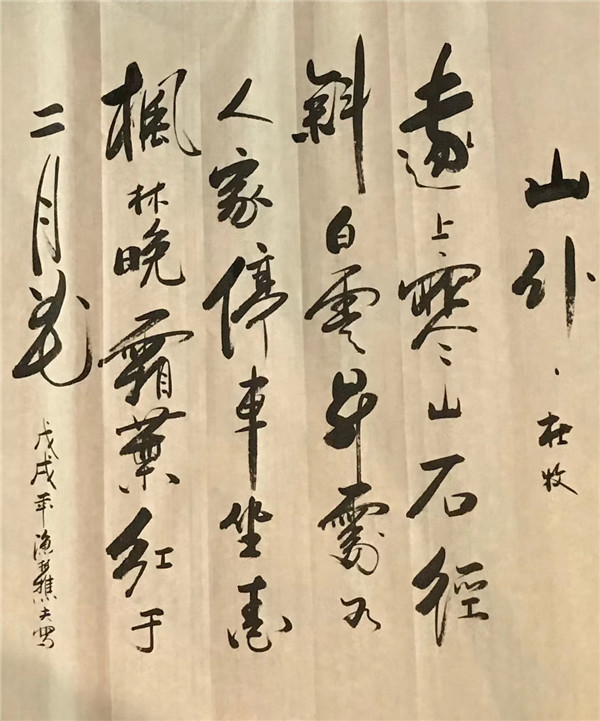 山行·杜牧
遠上寒山石徑
斜白雲昇處有
人家停車坐愛
楓林晚霜葉紅于
二月花
戊戌年漁樵夫寫